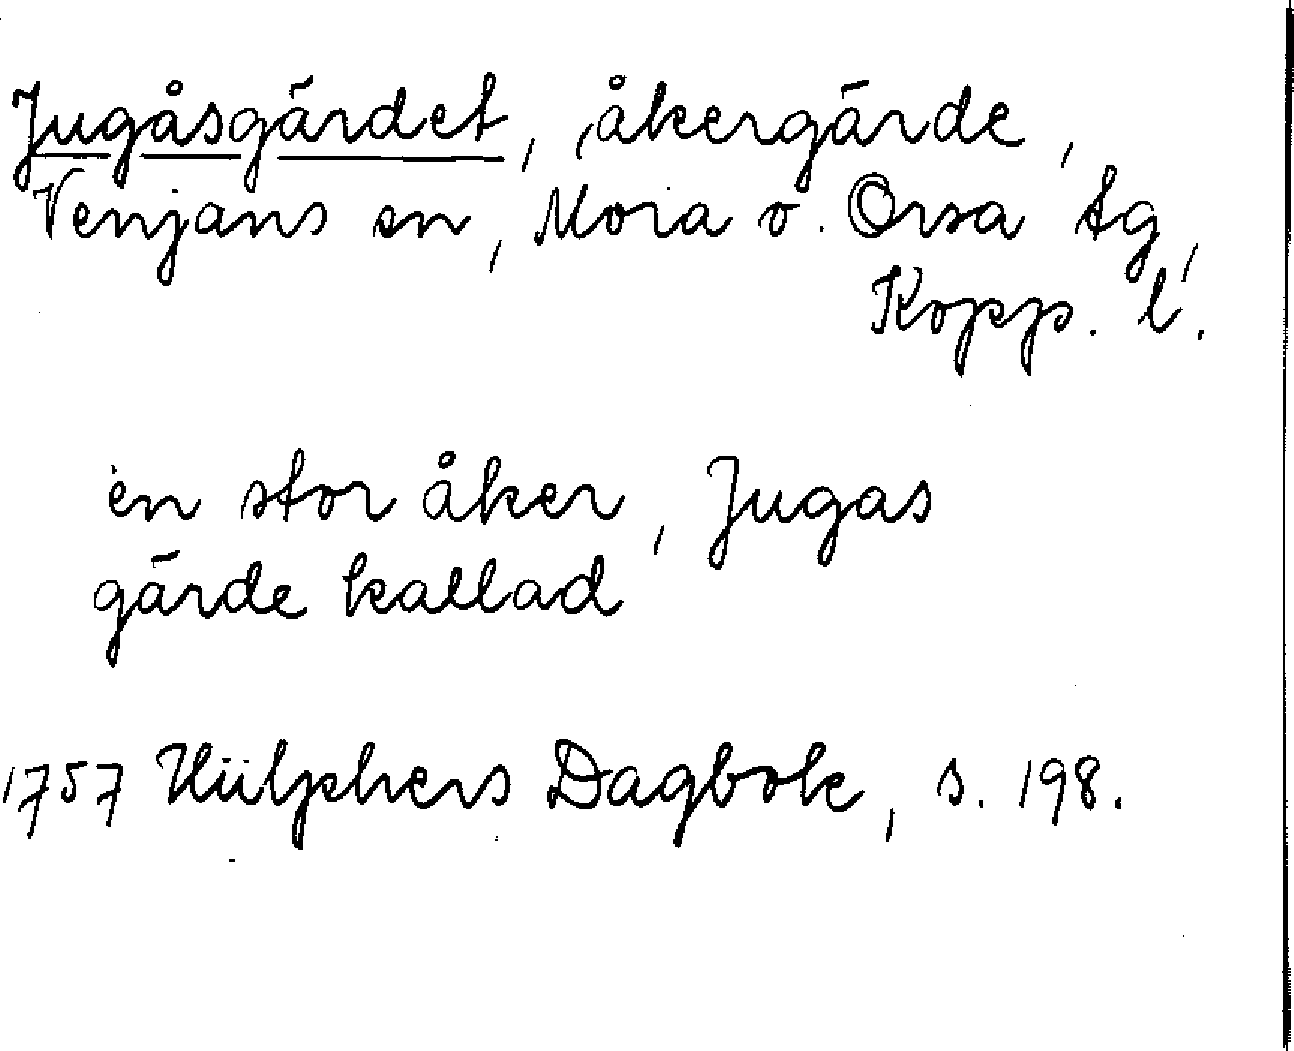 Jugåsgärdet, åkergärde,
Venjans sn, Mora o. Orsa tg,
Kopp. l.
en stor åker, Jugas
gärde kallad
1757 Hülphers Dagbok, s. 198.